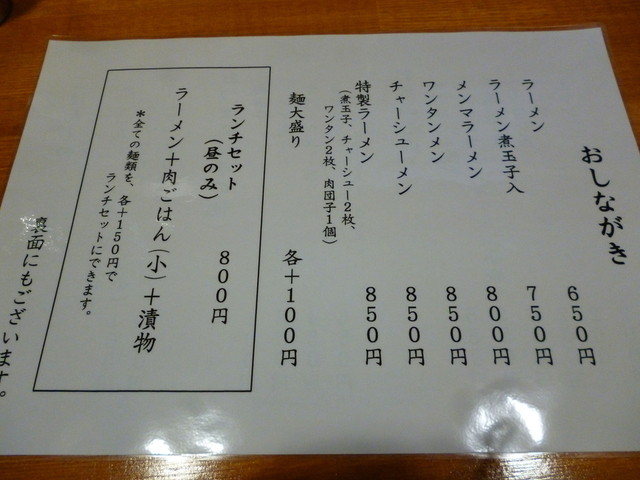 おしながき
ラーメン 650円
ラーメン煮玉子入 750円
メンマラーメン 800円
ワンタンメン 850円
チャーシューメン 850円
特製ラーメン 850円
（煮玉子、チャーシュー2枚、
ワンタン2枚、肉団子1個）
麺大盛り 各＋100円
ランチセット
（昼のみ） 800円
ラーメン＋肉ごはん（小）＋漬物
＊全ての麺類を、各＋150円で
ランチセットにできます。
裏面にもございます。